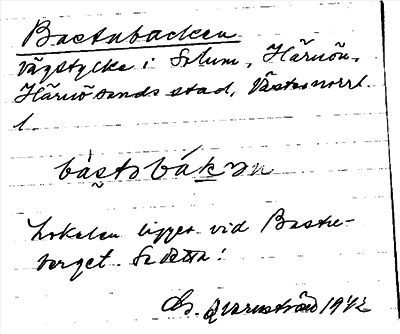 Bastubacken
Vägstycke i Solum, Härnön,
Härnösands stad, Västernorrl.
l.
bàstobákən
Lokalen ligger vid Bastu-
berget. Se detta!
G. Kvarnström 1942